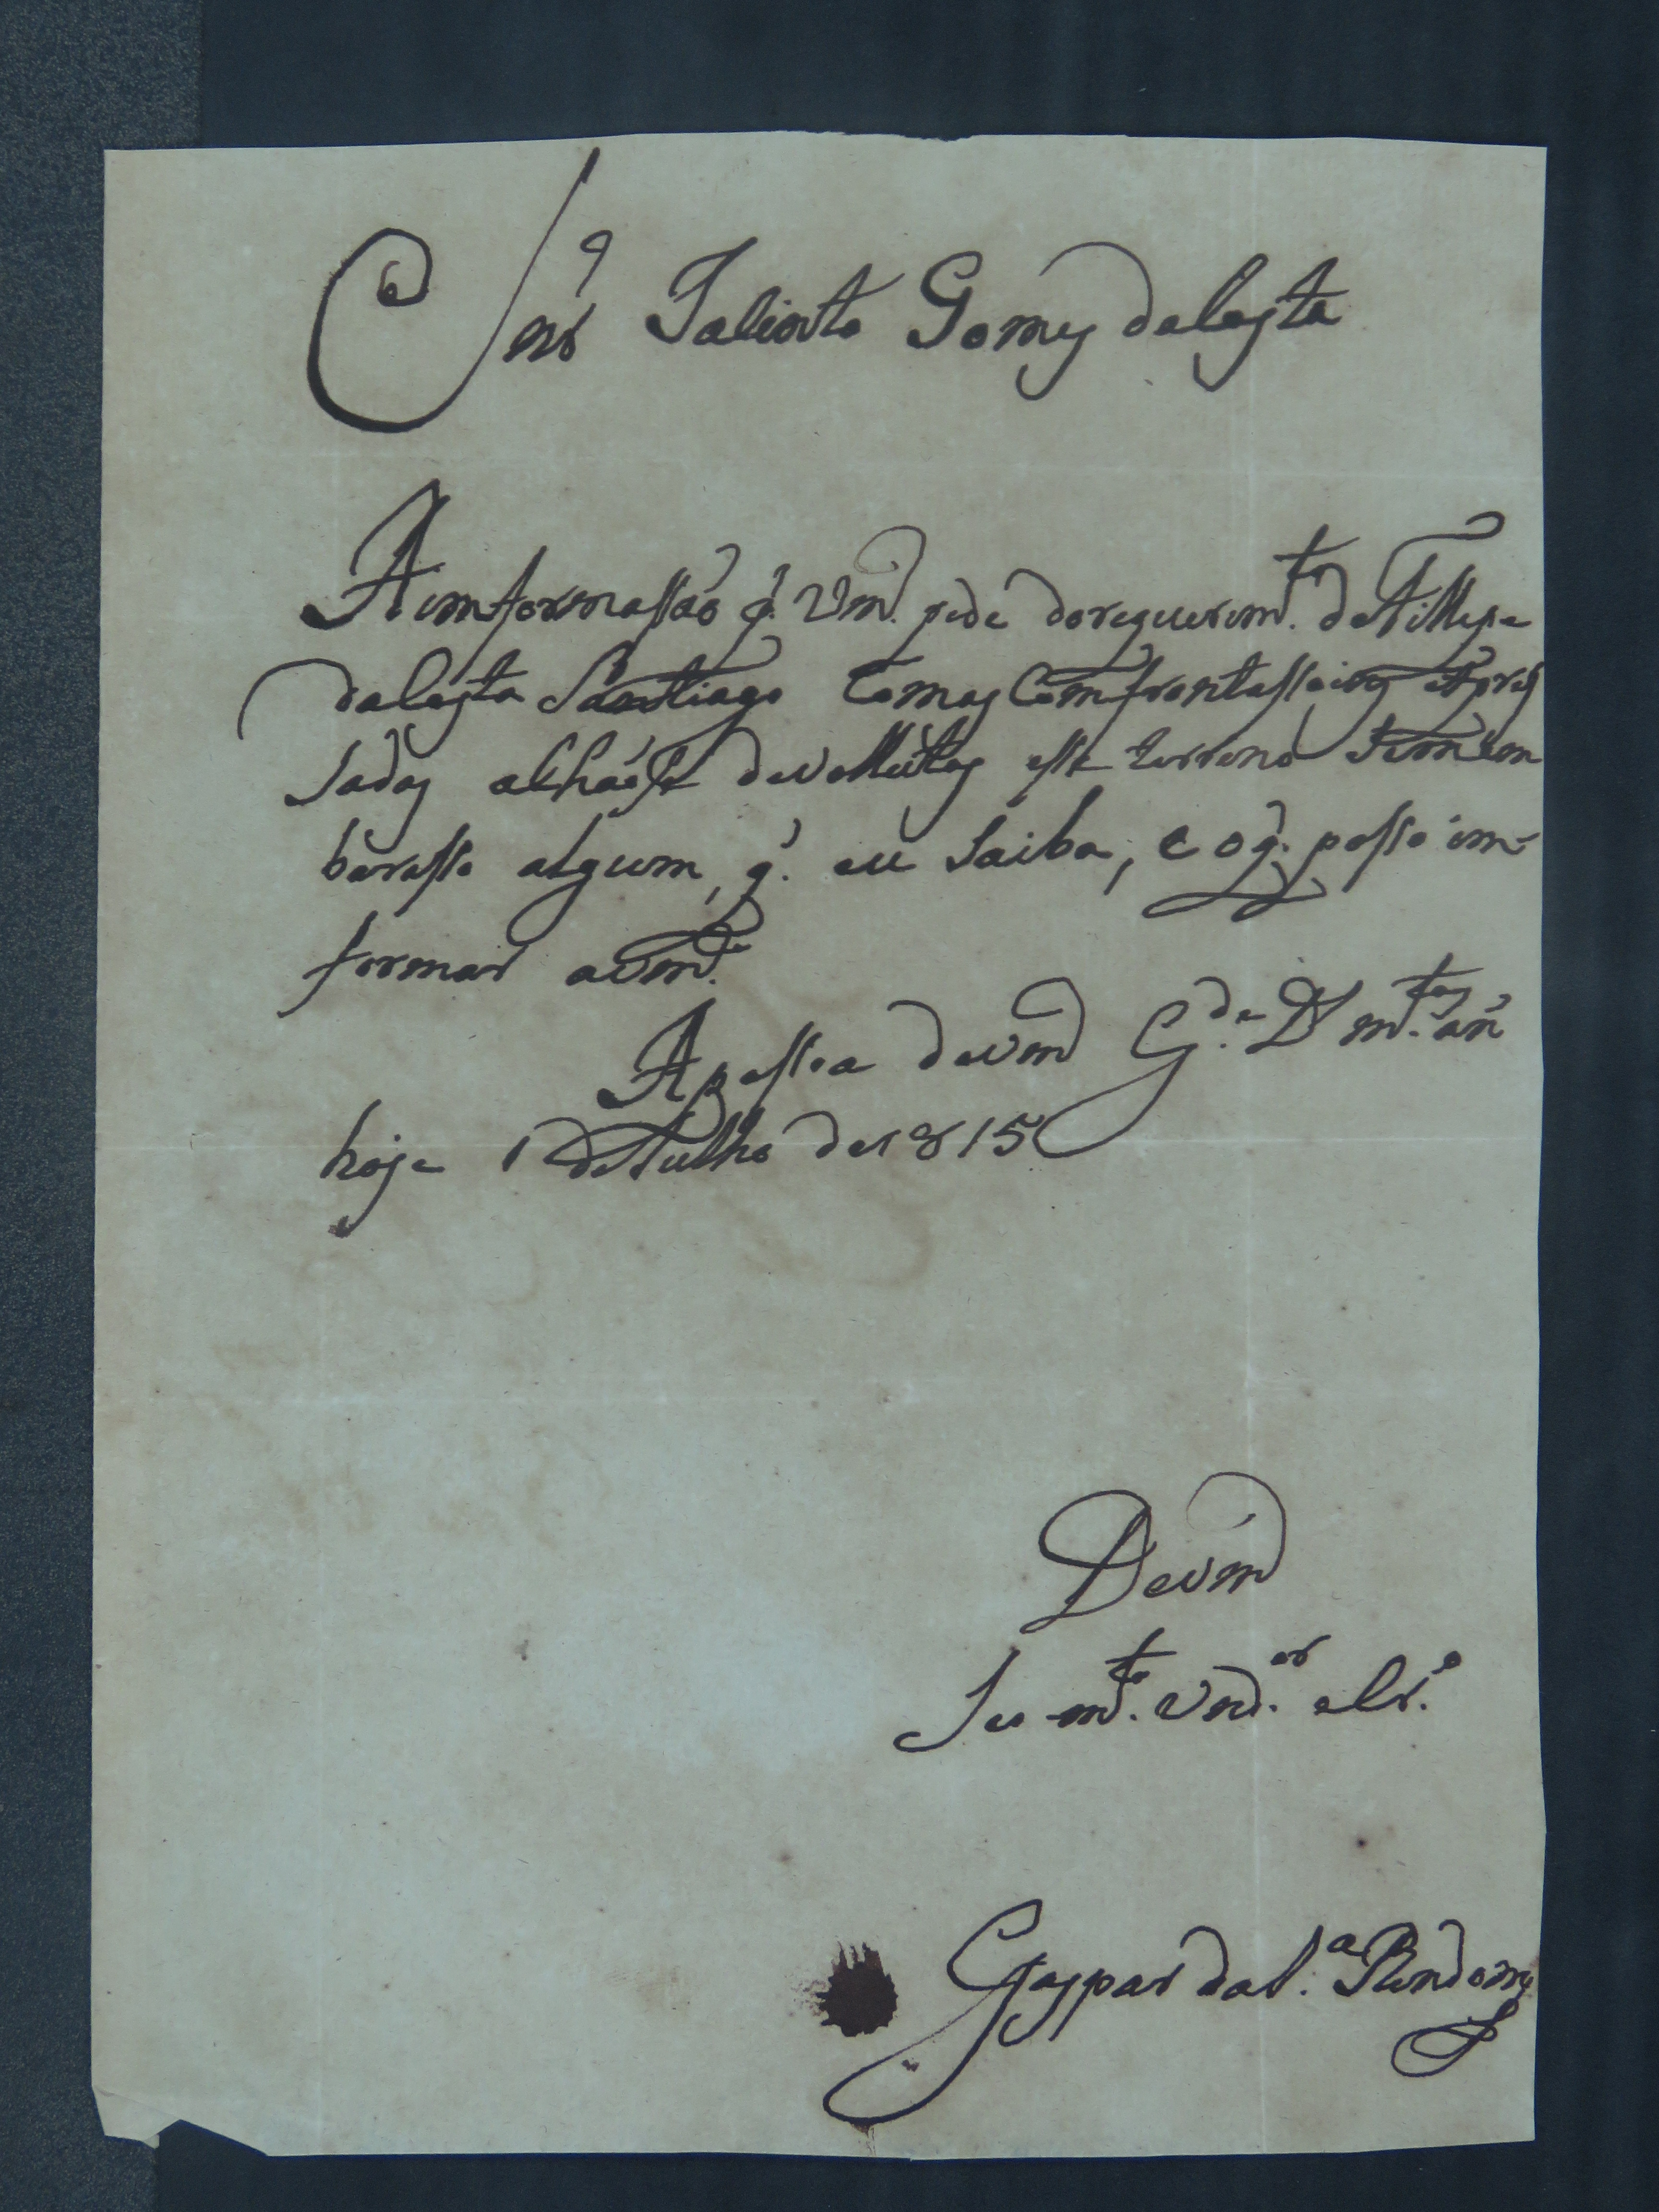 Senr Jacinto Gomes daCosta
A imformassão q. Vmce. pede dorequerimto. de Fillipe
daCosta Santtiago Comas Comfrontassoins Expres
sadas achãose devollutas esse terreno sem em
barasso algum, q. eu Saiba, e o q. posso im-
formar avmce.
A pessoa devmce Gde. Ds mtos. ans
hoje 1 de Julho de 1815
Devmce
Seu mto. Vndor. e Cro.
Gaspar da Sa. Rondom